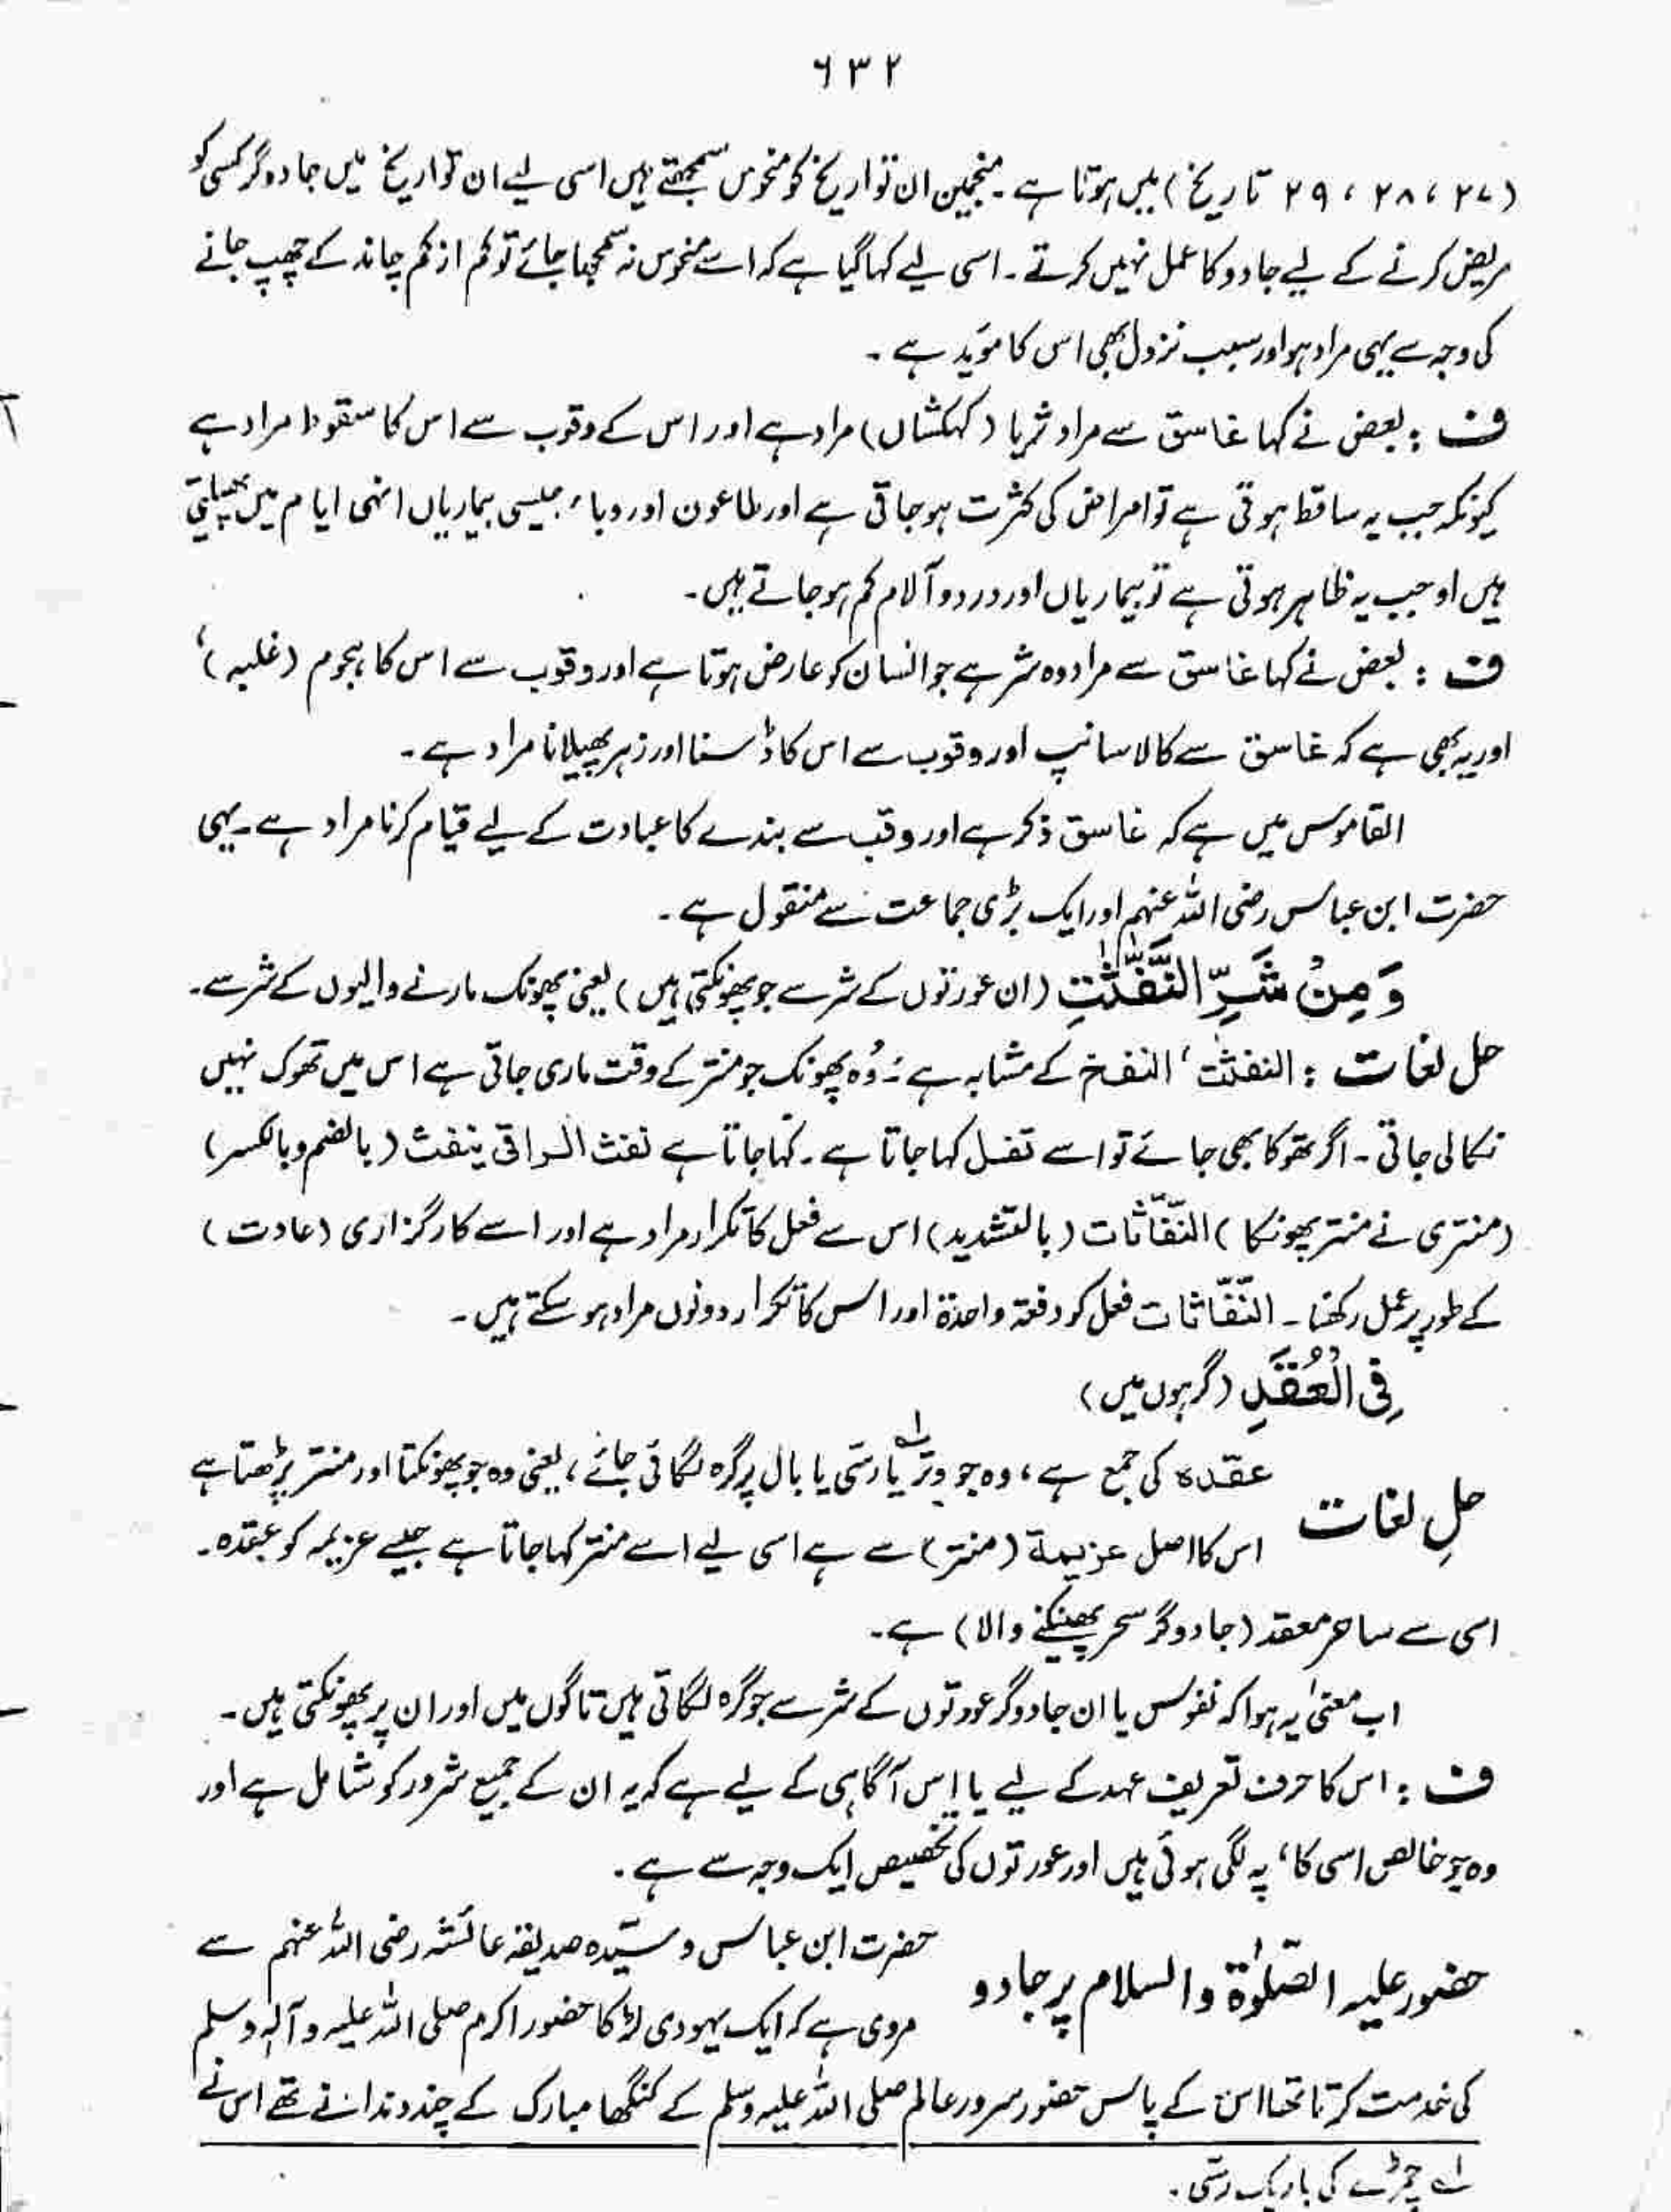 ٦٣٢
(٢٧، ٢٨، ٢٩ تاریخ) میں ہوتا ہے ۔ منجمین ان تواریخ کو منحوس سمجھتے ہیں اسی لیے ان تواریخ میں جادوگر کسی کو
مریض کرنے کے لیے جادو کا عمل نہیں کرتے ۔ اسی لیے کہا گیا ہے کہ اسے منحوس نہ سمجھا جائے تو کم از کم چاند کے چھپ جانے
کی وجہ سے یہی مراد ہو اور سبب نزول بھی اس کا مؤید ہے ۔
ف : بعض نے کہا غاسق سے مراد ثریا (کہکشاں) مراد ہے اور اس کے وقوب سے اس کا سقوط مراد ہے
کیونکہ جب یہ ساقط ہوتی ہے تو امراض کی کثرت ہو جاتی ہے اور طاعون اور وباء جیسی بیماریاں انہی ایام میں پھیلتی
ہیں او جب یہ ظاہر ہوتی ہے تو بیماریاں اور درد و آلام کم ہو جاتے ہیں ۔
ف : بعض نے کہا غاسق سے مراد وہ شر ہے جو انسان کو عارض ہوتا ہے اور وقوب سے اس کا ہجوم (غلبہ)،
اور یہ بھی ہے کہ غاسق سے کالا سانپ اور وقوب سے اس کا ڈسنا اور زہر پھیلانا مراد ہے ۔
القاموس میں ہے کہ غاسق ذکر ہے اور وقب سے بندے کا عبادت کے لیے قیام کرنا مراد ہے ۔ یہی
حضرت ابن عباس رضی اللہ عنہم اور ایک بڑی جماعت سے منقول ہے ۔
وَمِنْ شَرِّ النَّفّٰثٰتِ (ان عورتوں کے شر سے جو پھونکتی ہیں) یعنی پھونک مارنے والیوں کے شر سے ۔
حل لغات : النفثٰت، النفخ کے مشابہ ہے ۔ وُہ پھونک جو منتر کے وقت ماری جاتی ہے اس میں تھوک نہیں
نکالی جاتی ۔ اگر تھوکا بھی جائے تو اسے تفل کہا جاتا ہے ۔ کہا جاتا ہے نفث الراقی ینفث (بالضم وبالکسر)
(منتری نے منتر پھونکا) النّفّاثات (بالتشدید) اس سے فعل کا تکرار مراد ہے اور اسے کارگزاری (عادت)
کے طور پر عمل رکھنا ۔ النّفّاثات فعل کو دفعۃ واحدۃ اور اس کا تکرار دونوں مراد ہو سکتے ہیں ۔
فِی الْعُقَدِ (گرہوں میں)
حلِ لغات عقدہ کی جمع ہے، وہ جو وتر لہ یا رسّی یا بال پر گرہ لگائی جائے، یعنی وہ جو پھونکتا اور منتر پڑھتا ہے
اس کا اصل عزیمۃ (منتر) سے ہے اسی لیے اسے منتر کہا جاتا ہے جیسے عزیمہ کو عقدہ ۔
اسی سے ساحر معقد (جادوگر سحر پھینکنے والا) ہے ۔
اب معنیٰ یہ ہوا کہ نفوس یا ان جادوگر عورتوں کے شر سے جو گرہ لگاتی ہیں تاگوں میں اور ان پر پھونکتی ہیں ۔
ف : اس کا حرف تعریف عہد کے لیے یا اِس آگاہی کے لیے ہے کہ یہ ان کے جمیع شرور کو شامل ہے اور
وہ جو خالص اسی کا، پہ لگی ہوئی ہیں اور عورتوں کی تخصیص ایک وجہ سے ہے ۔
حضور علیہ الصّلوٰۃ والسلام پر جادو حضرت ابن عباس و سیّدہ صدیقہ عائشہ رضی اللہ عنہم سے
مروی ہے کہ ایک یہودی لڑکا حضور اکرم صلی اللہ علیہ وآلہٖ وسلم
کی خدمت کرتا تھا اس کے پاس حضور سرور عالم صلی اللہ علیہ وسلم کے کنگھا مبارک کے چند دندانے تھے اس نے
لہ چمڑے کی باریک رسّی ۔